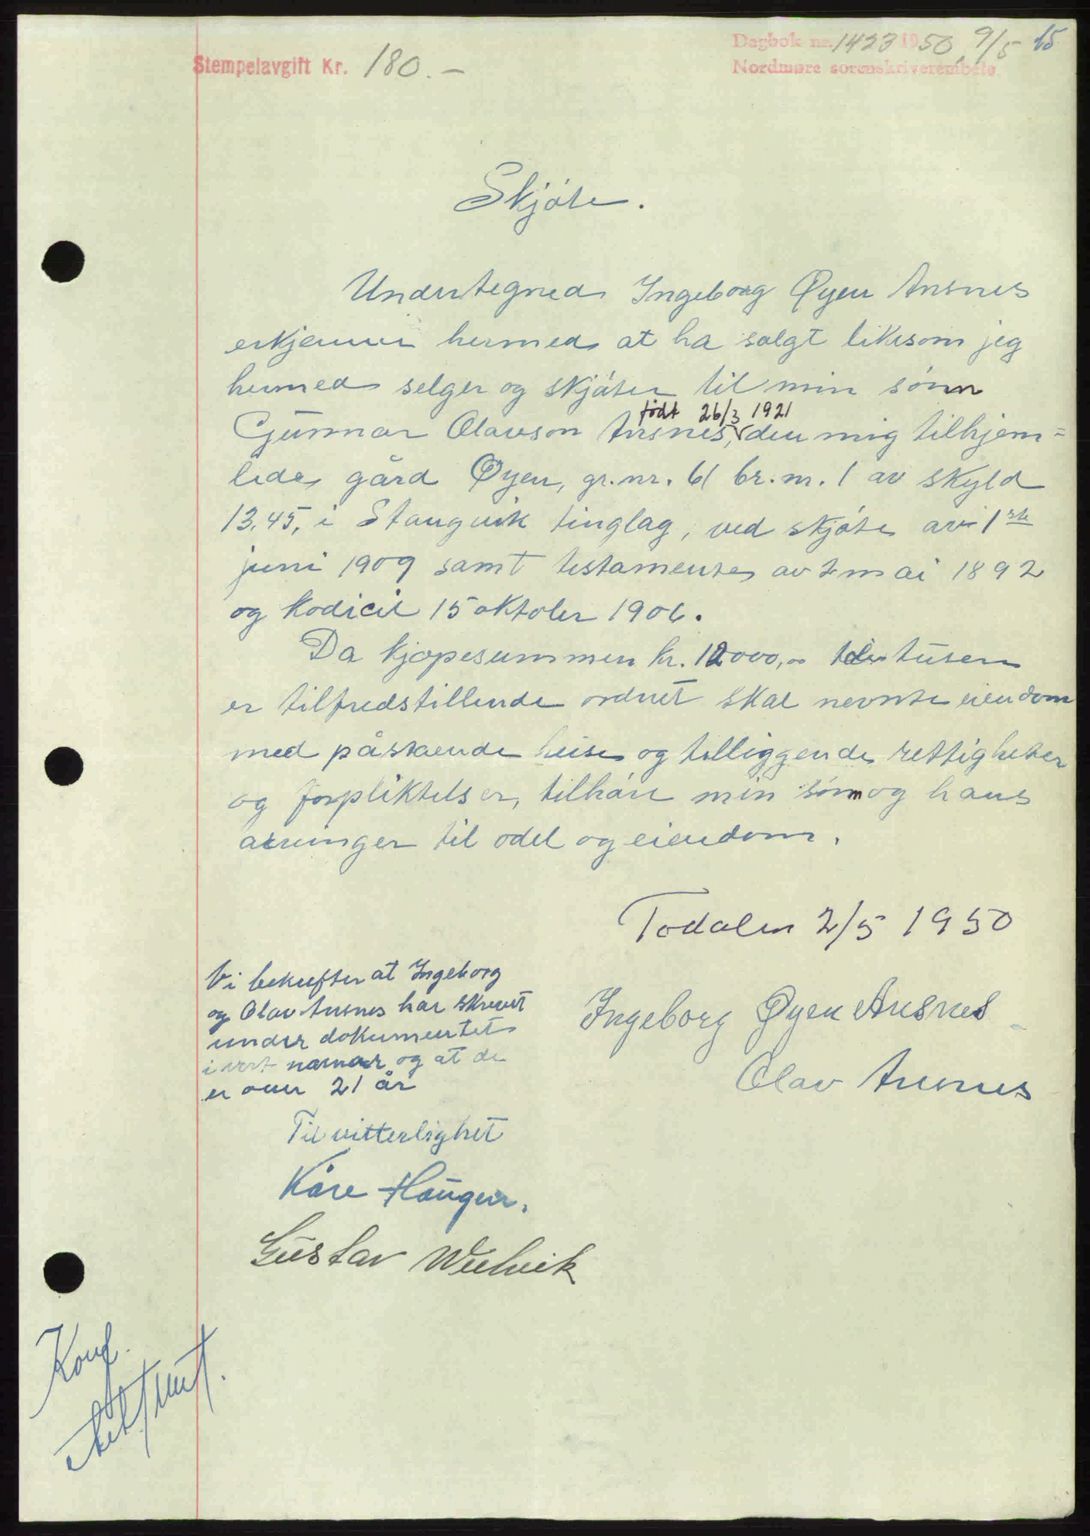 Stempelavgift Kr. 180.-
Dagbok nr. 1423 1950, 9/5 15
Nordmøre sorenskriverembete
Skjöte.
Undertegnede Ingeborg Øyen Ansnes
erkjenner hermed at ha solgt liksom jeg
hermed selger og skjöter til min sönn
født 26/3 1921
Gunnar Olavson Ansnes, den mig tilhjem=
lede gård Øyen, gr.nr. 61 br.nr. 1 av skyld
13,45, i Stangvik tinglag, ved skjöte av 1ste
juni 1909 samt testamente av 2 mai 1892
og kodicil 15 oktober 1906.
Da kjøpesummen kr. 12000,00 tusen
er tilfredstillende ordnet skal nevnte eiendom
med påstående huse og tilliggende rettigheter
og forpliktelser, tilhöre min sönn og hans
arvinger til odel og eiendom.
Todalen 2/5 1950
Ingeborg Øyen Ansnes
Olav Ansnes
Vi bekrefter at Ingeborg
og Olav Ansnes har skrevet
under dokumentet
i vort nærvær og at de
er over 21 år
Til vitterlighet
Kåre Haugen.
Gustav Wullvik
Konf.